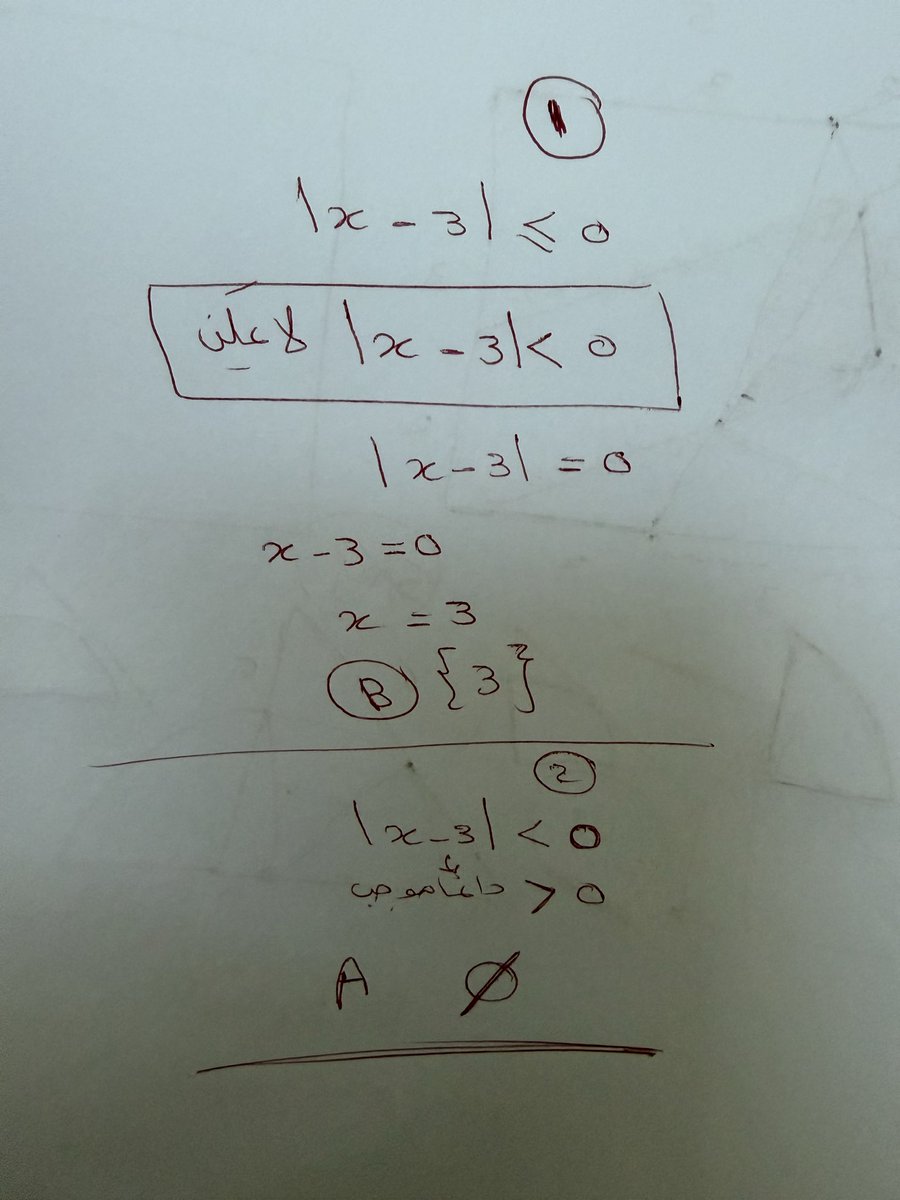 1
|x - 3| ≤ 0
لا يمكن |x - 3| < 0
|x - 3| = 0
x - 3 = 0
x = 3
B {3}
2
|x - 3| < 0
دائما موجب > 0
A ∅